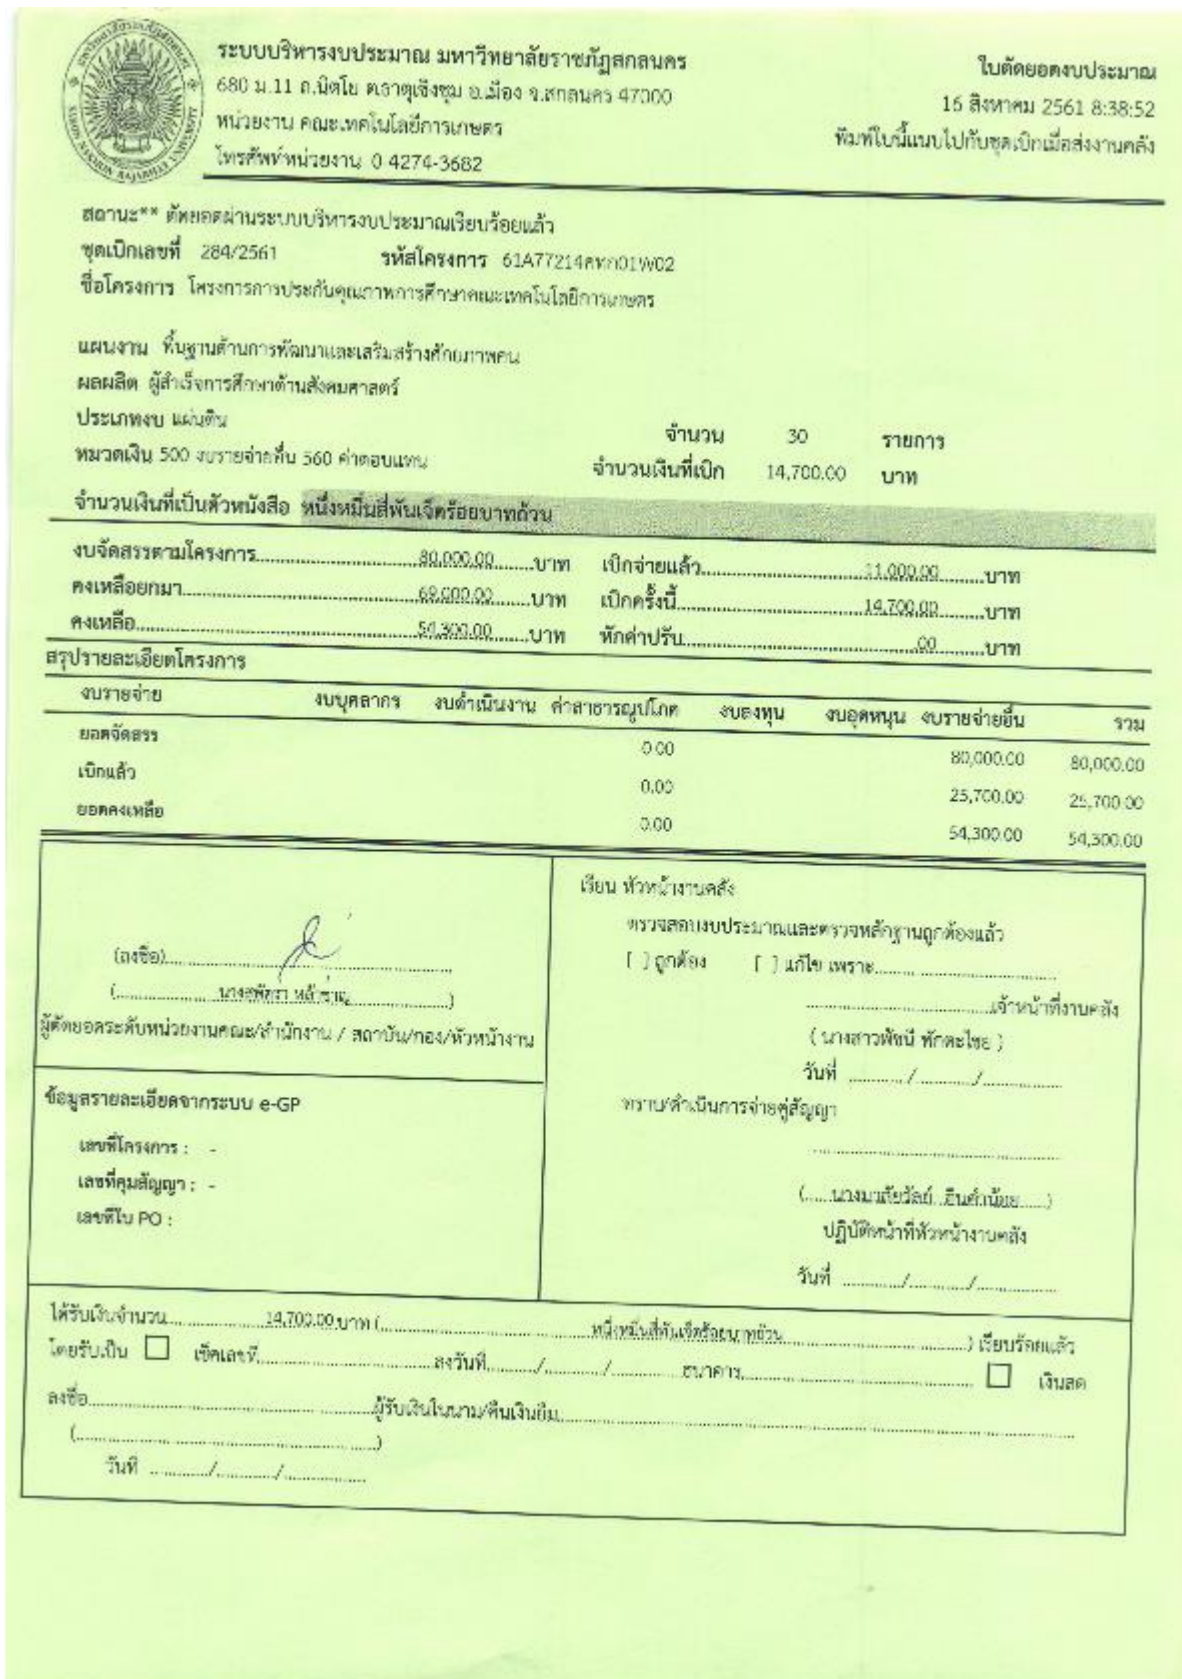 ระบบบริหารงบประมาณ มหาวิทยาลัยราชภัฏสกลนคร
ใบตัดยอดงบประมาณ
680 ม.11 ถ.นิตโย ต.ธาตุเชิงชุม อ.เมือง จ.สกลนคร 47000
16 สิงหาคม 2561 8:38:52
หน่วยงาน คณะเทคโนโลยีการเกษตร
พิมพ์ใบนี้แนบไปกับชุดเบิกเมื่อส่งงานคลัง
โทรศัพท์หน่วยงาน 0 4274-3682
สถานะ** ตัดยอดผ่านระบบบริหารงบประมาณเรียบร้อยแล้ว
ชุดเบิกเลขที่ 284/2561 รหัสโครงการ 61A77214คทก01W02
ชื่อโครงการ โครงการการประกันคุณภาพการศึกษาคณะเทคโนโลยีการเกษตร
แผนงาน พื้นฐานด้านการพัฒนาและเสริมสร้างศักยภาพคน
ผลผลิต ผู้สำเร็จการศึกษาด้านสังคมศาสตร์
ประเภทงบ แผ่นดิน จำนวน 30 รายการ
หมวดเงิน 500 งบรายจ่ายอื่น 560 ค่าตอบแทน จำนวนเงินที่เบิก 14,700.00 บาท
จำนวนเงินที่เป็นตัวหนังสือ หนึ่งหมื่นสี่พันเจ็ดร้อยบาทถ้วน
งบจัดสรรตามโครงการ 80,000.00 บาท เบิกจ่ายแล้ว 11,000.00 บาท
คงเหลือยกมา 69,000.00 บาท เบิกครั้งนี้ 14,700.00 บาท
คงเหลือ 54,300.00 บาท หักค่าปรับ .00 บาท
สรุปรายละเอียดโครงการ
งบรายจ่าย งบบุคลากร งบดำเนินงาน ค่าสาธารณูปโภค งบลงทุน งบอุดหนุน งบรายจ่ายอื่น รวม
ยอดจัดสรร 0.00 80,000.00 80,000.00
เบิกแล้ว 0.00 25,700.00 25,700.00
ยอดคงเหลือ 0.00 54,300.00 54,300.00
(ลงชื่อ)
(นางสุพัตรา)
ผู้ตัดยอดระดับหน่วยงานคณะ/สำนักงาน / สถาบัน/กอง/หัวหน้างาน
ข้อมูลรายละเอียดจากระบบ e-GP
เลขที่โครงการ : -
เลขที่คุมสัญญา : -
เลขที่ใบ PO :
เรียน หัวหน้างานคลัง
ตรวจสอบงบประมาณและตรวจหลักฐานถูกต้องแล้ว
[ ] ถูกต้อง [ ] แก้ไข เพราะ
เจ้าหน้าที่งานคลัง
( นางสาวพัชนี ทักตะไชย )
วันที่ / /
ทราบ/ดำเนินการจ่ายคู่สัญญา
(นางมาลัยวัลย์ อินคำน้อย)
ปฏิบัติหน้าที่หัวหน้างานคลัง
วันที่ / /
ได้รับเงินจำนวน 14,700.00 บาท ( หนึ่งหมื่นสี่พันเจ็ดร้อยบาทถ้วน ) เรียบร้อยแล้ว
โดยรับเป็น เช็คเลขที่ ลงวันที่ / / ธนาคาร เงินสด
ลงชื่อ ผู้รับเงินในนาม/คืนเงินยืม
( )
วันที่ / /